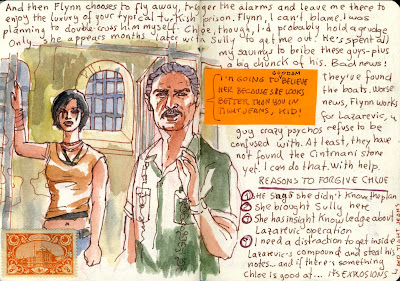 And then Flynn chooses to fly away, trigger the alarms and leave me there to
enjoy the luxury of your typical turkish prison. Flynn, I can't blame. I was
planning to double-cross him myself. Chloe, though, I'd probably hold a grudge.
Only she appears months later with Sully to get me out! He's spent all
my savings to bribe these guys - plus
a big chunck of his. Bad news!
they've found
the boats. Worse
news, Flynn works
for Lazarevic, a
guy crazy psychos refuse to be
confused with. At least, they have
not found the Cintmani stone
yet. I can do that, with help.
I'M GOING TO BELIEVE
HER BECAUSE SHE LOOKS
BETTER THAN YOU IN
TIGHT JEANS, KID!
REASONS TO FORGIVE CHLOE
1 SHE says she didn't know the plan
2 She brought Sully here
3 She has insight knowledge about
Lazarevic operation
4 I need a distraction to get inside
Lazarevic's compound and steal his
notes... and if there's something
Chloe is good at... it's EXPLOSIONS
AND TIGHT JEANS